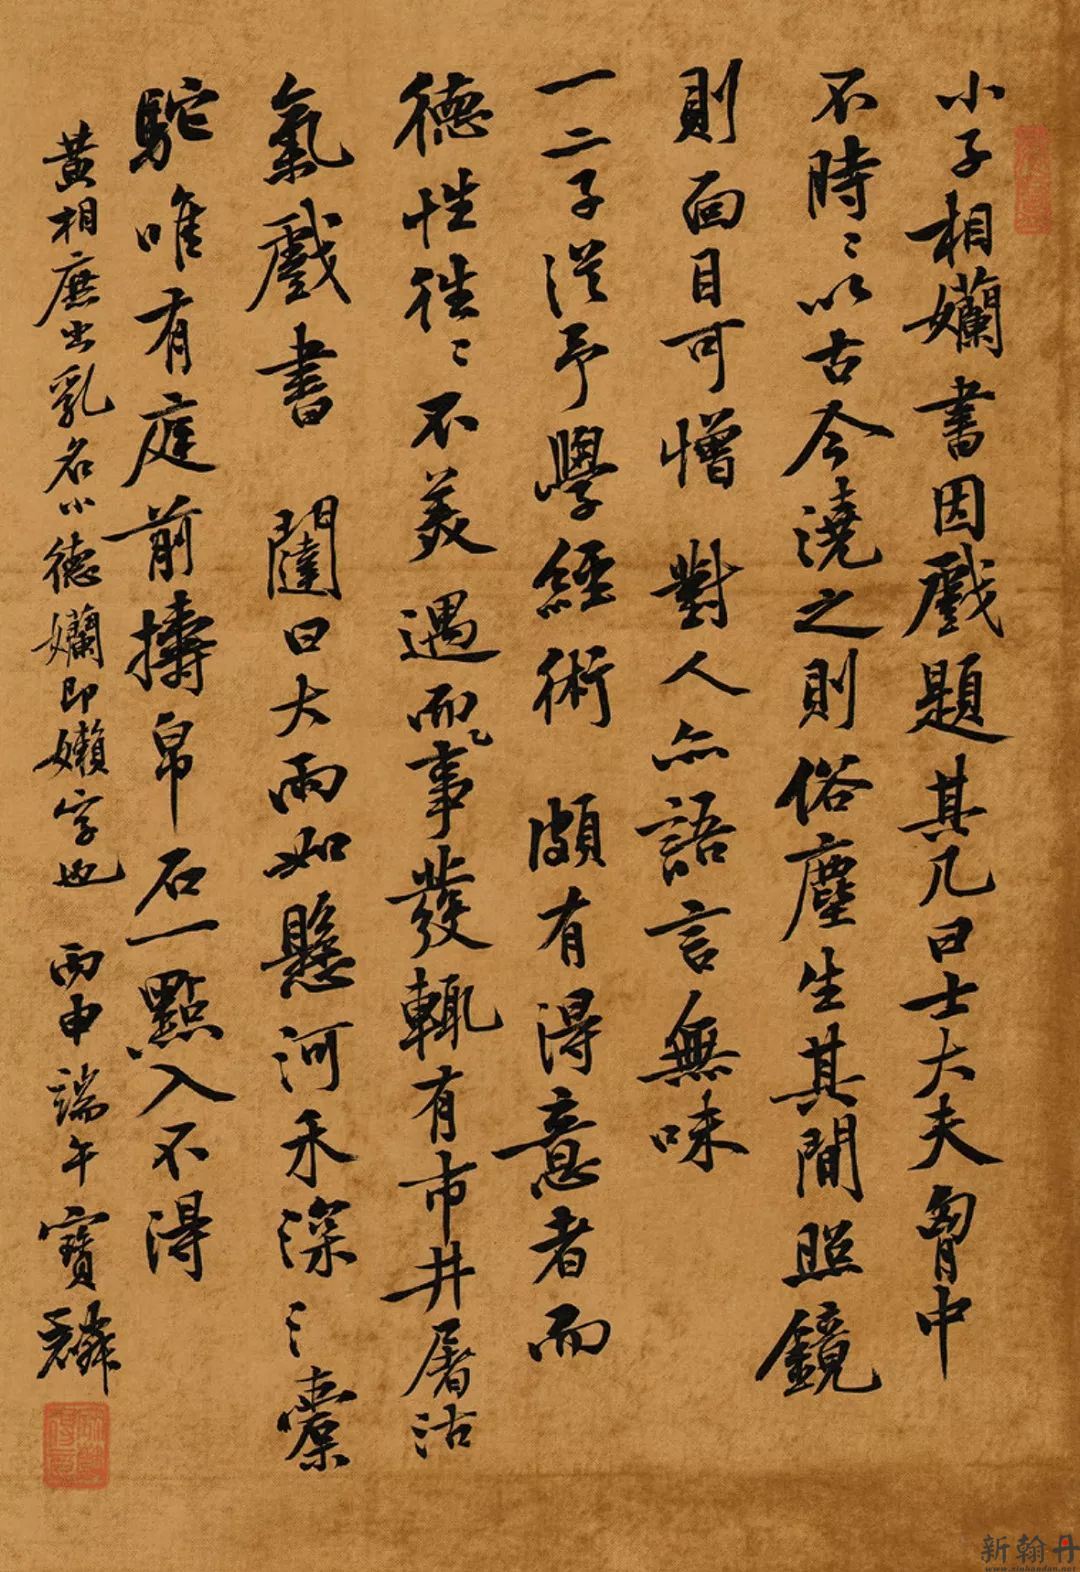 小子相孏書因戲題其几曰士大夫胷中
不時〻以古今澆之則俗塵生其間照鏡
則面目可憎對人亦語言無味
一二子從予學經術頗有得意者而
德性往〻不美遇而事發輒有市井屠沽
氣戲書 闥曰大雨如懸河禾深〻橐
駝唯有庭前擣帛石一點入不得
黃相庶出乳名小德孏即嬾字也 丙申端午寶麟
新翰丹
www.xinhandan.net